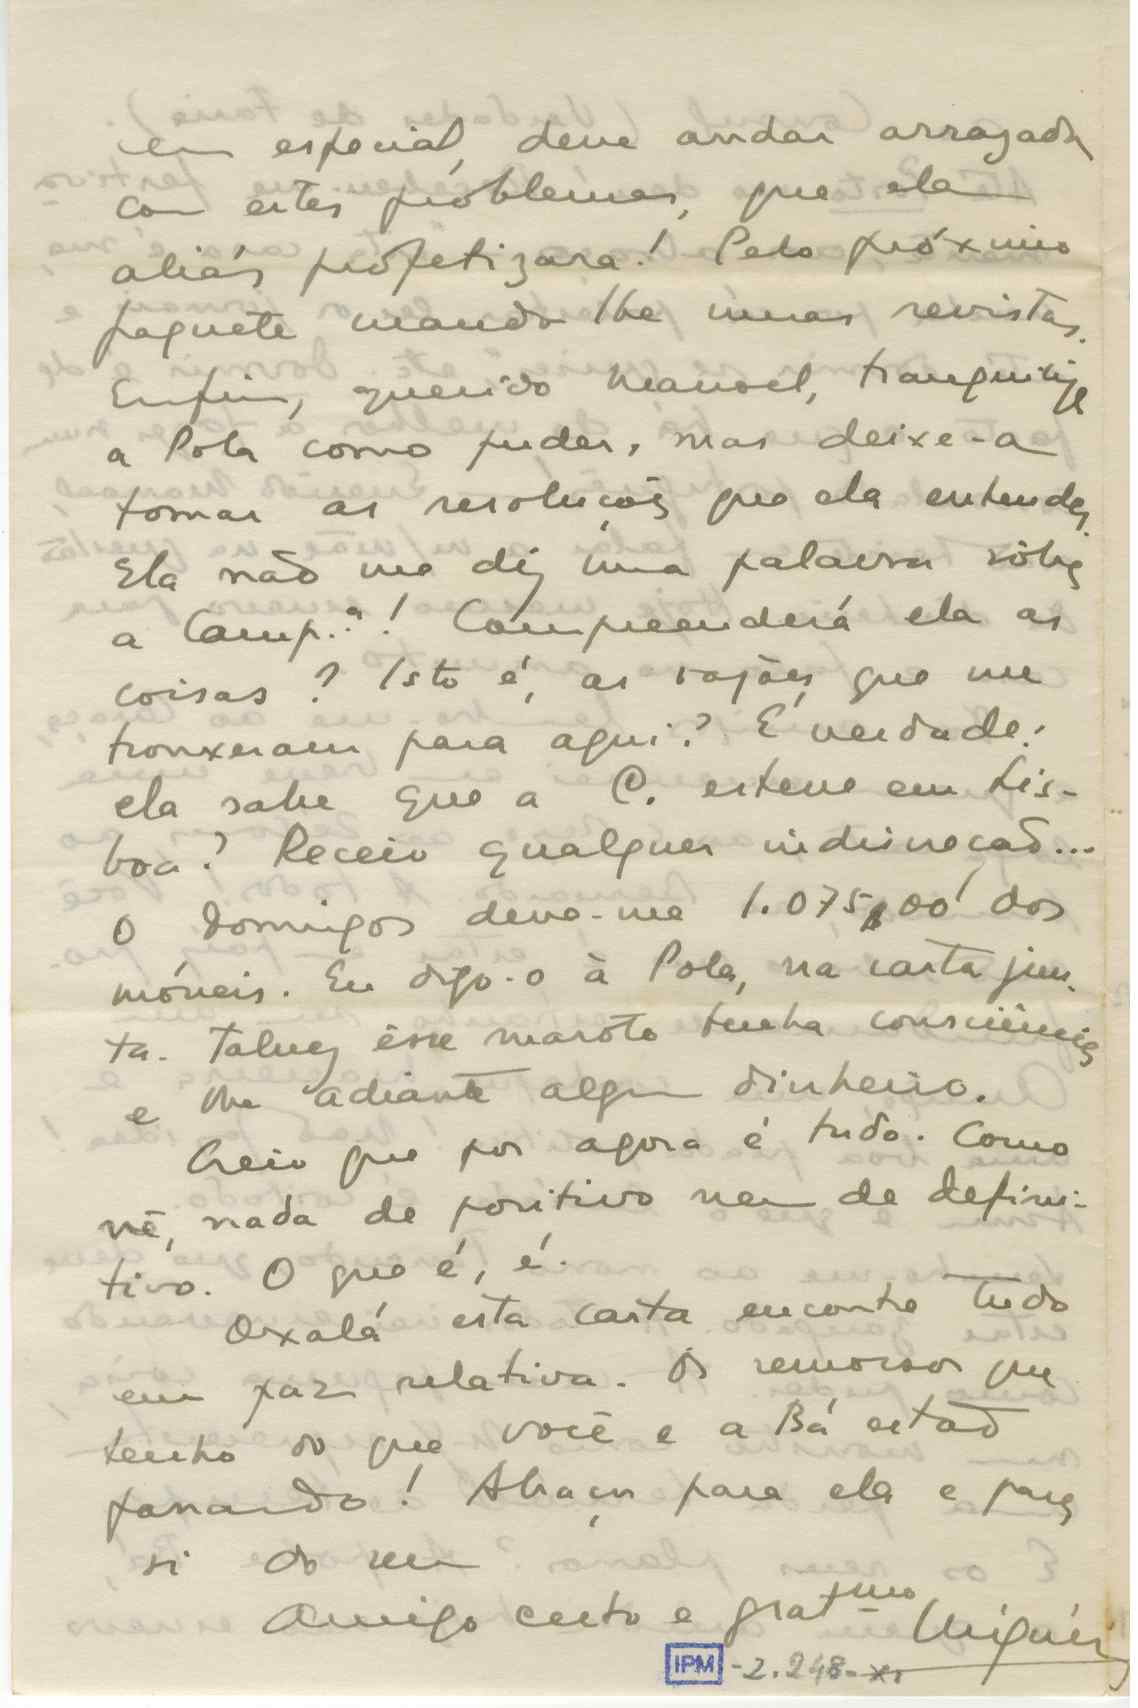 em especial, deve andar arrazada
com estes problemas, que ela
aliás profetizara! Pelo próximo
paquete mando-lhe umas revistas.
Enfim, querido Manoel, tranquilize
a Pola como puder, mas deixe-a
tomar as resoluções que ela entender.
Ela não me diz uma palavra sôbre
a Camp.ª! Compreenderá ela as
coisas? Isto é, as razões que me
trouxeram para aqui? E' verdade:
ela sabe que a C. esteve em Lis-
boa? Receio qualquer indiscreção...
O Domingos deve-me 1.075$00 dos
móveis. Eu digo-o à Pola, na carta jun-
ta. Talvez êsse maroto tenha consciência
e lhe adiante algum dinheiro.
Creio que por agora é tudo. Como
vê, nada de positivo nem de defini-
tivo. O que é, é.
Oxalá esta carta encontre tudo
em paz relativa. Os remorsos que
tenho do que você e a Bá estão
passando! Abraços para ela e para
si do seu
Amigo certo e grat.mo Miguéis
IPM -2.248-XI